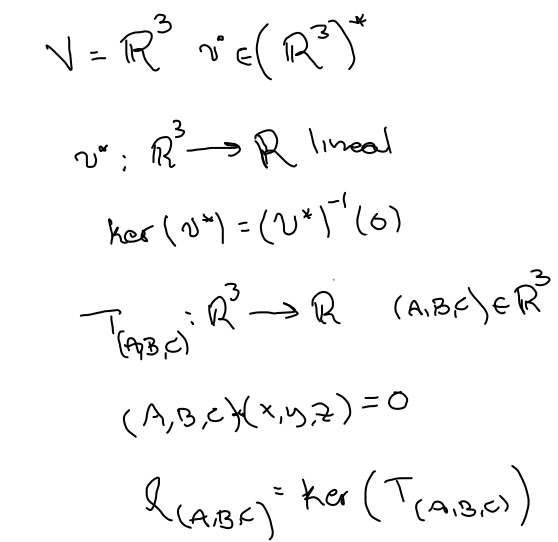 V = ℝ³ v* ∈ (ℝ³)*
v* : ℝ³ → ℝ lineal
ker(v*) = (v*)⁻¹(0)
T_(A,B,C) : ℝ³ → ℝ (A,B,C) ∈ ℝ³
(A,B,C)·(x,y,z) = 0
l_(A,B,C) = ker(T_(A,B,C))